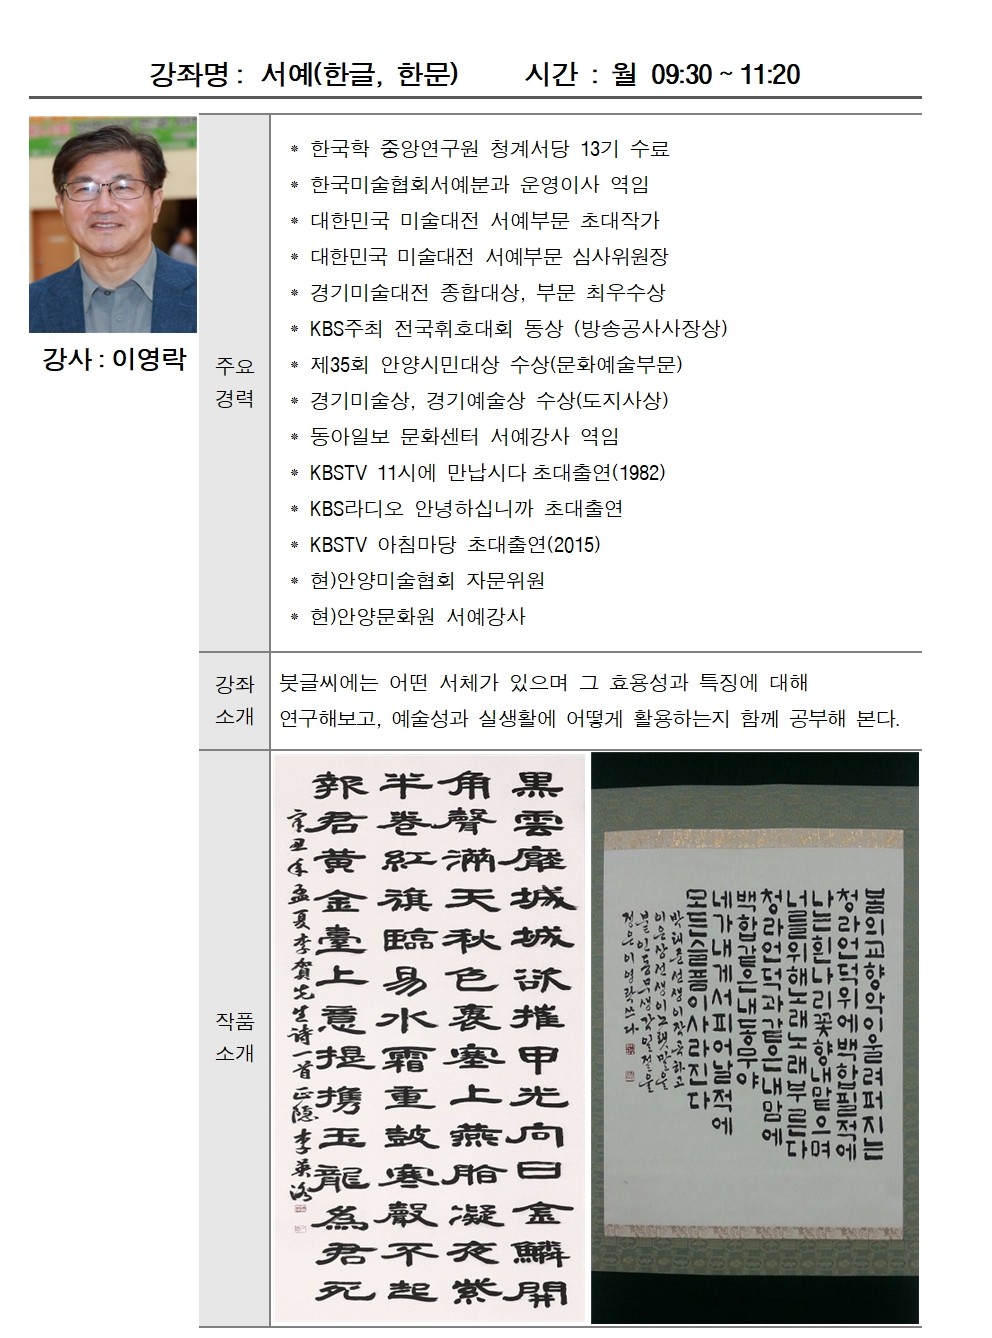 강좌명 : 서예(한글, 한문) 시간 : 월 09:30 ~ 11:20
강사 : 이영락
주요
경력
* 한국학 중앙연구원 청계서당 13기 수료
* 한국미술협회서예분과 운영이사 역임
* 대한민국 미술대전 서예부문 초대작가
* 대한민국 미술대전 서예부문 심사위원장
* 경기미술대전 종합대상, 부문 최우수상
* KBS주최 전국휘호대회 동상 (방송공사사장상)
* 제35회 안양시민대상 수상(문화예술부문)
* 경기미술상, 경기예술상 수상(도지사상)
* 동아일보 문화센터 서예강사 역임
* KBSTV 11시에 만납시다 초대출연(1982)
* KBS라디오 안녕하십니까 초대출연
* KBSTV 아침마당 초대출연(2015)
* 현)안양미술협회 자문위원
* 현)안양문화원 서예강사
강좌
소개
붓글씨에는 어떤 서체가 있으며 그 효용성과 특징에 대해
연구해보고, 예술성과 실생활에 어떻게 활용하는지 함께 공부해 본다.
작품
소개
黑雲壓城城欲摧甲光向日金鱗開
角聲滿天秋色裏塞上燕脂凝夜紫
半卷紅旗臨易水霜重鼓寒聲不起
報君黃金臺上意提攜玉龍為君死
辛丑年孟夏李賀先生詩一首 正隱 李英洛
봄의교향악이울려퍼지는
청라언덕위에백합필적에
나는흰나리꽃향내맡으며
너를위해노래노래부른다
청라언덕과같은내맘에
백합같은내동무야
네가내게서피어날적에
모든슬픔이사라진다
박태준선생이작곡하고
이은상선생이노랫말을
붙인동무생각일절을
정은이영락쓰다